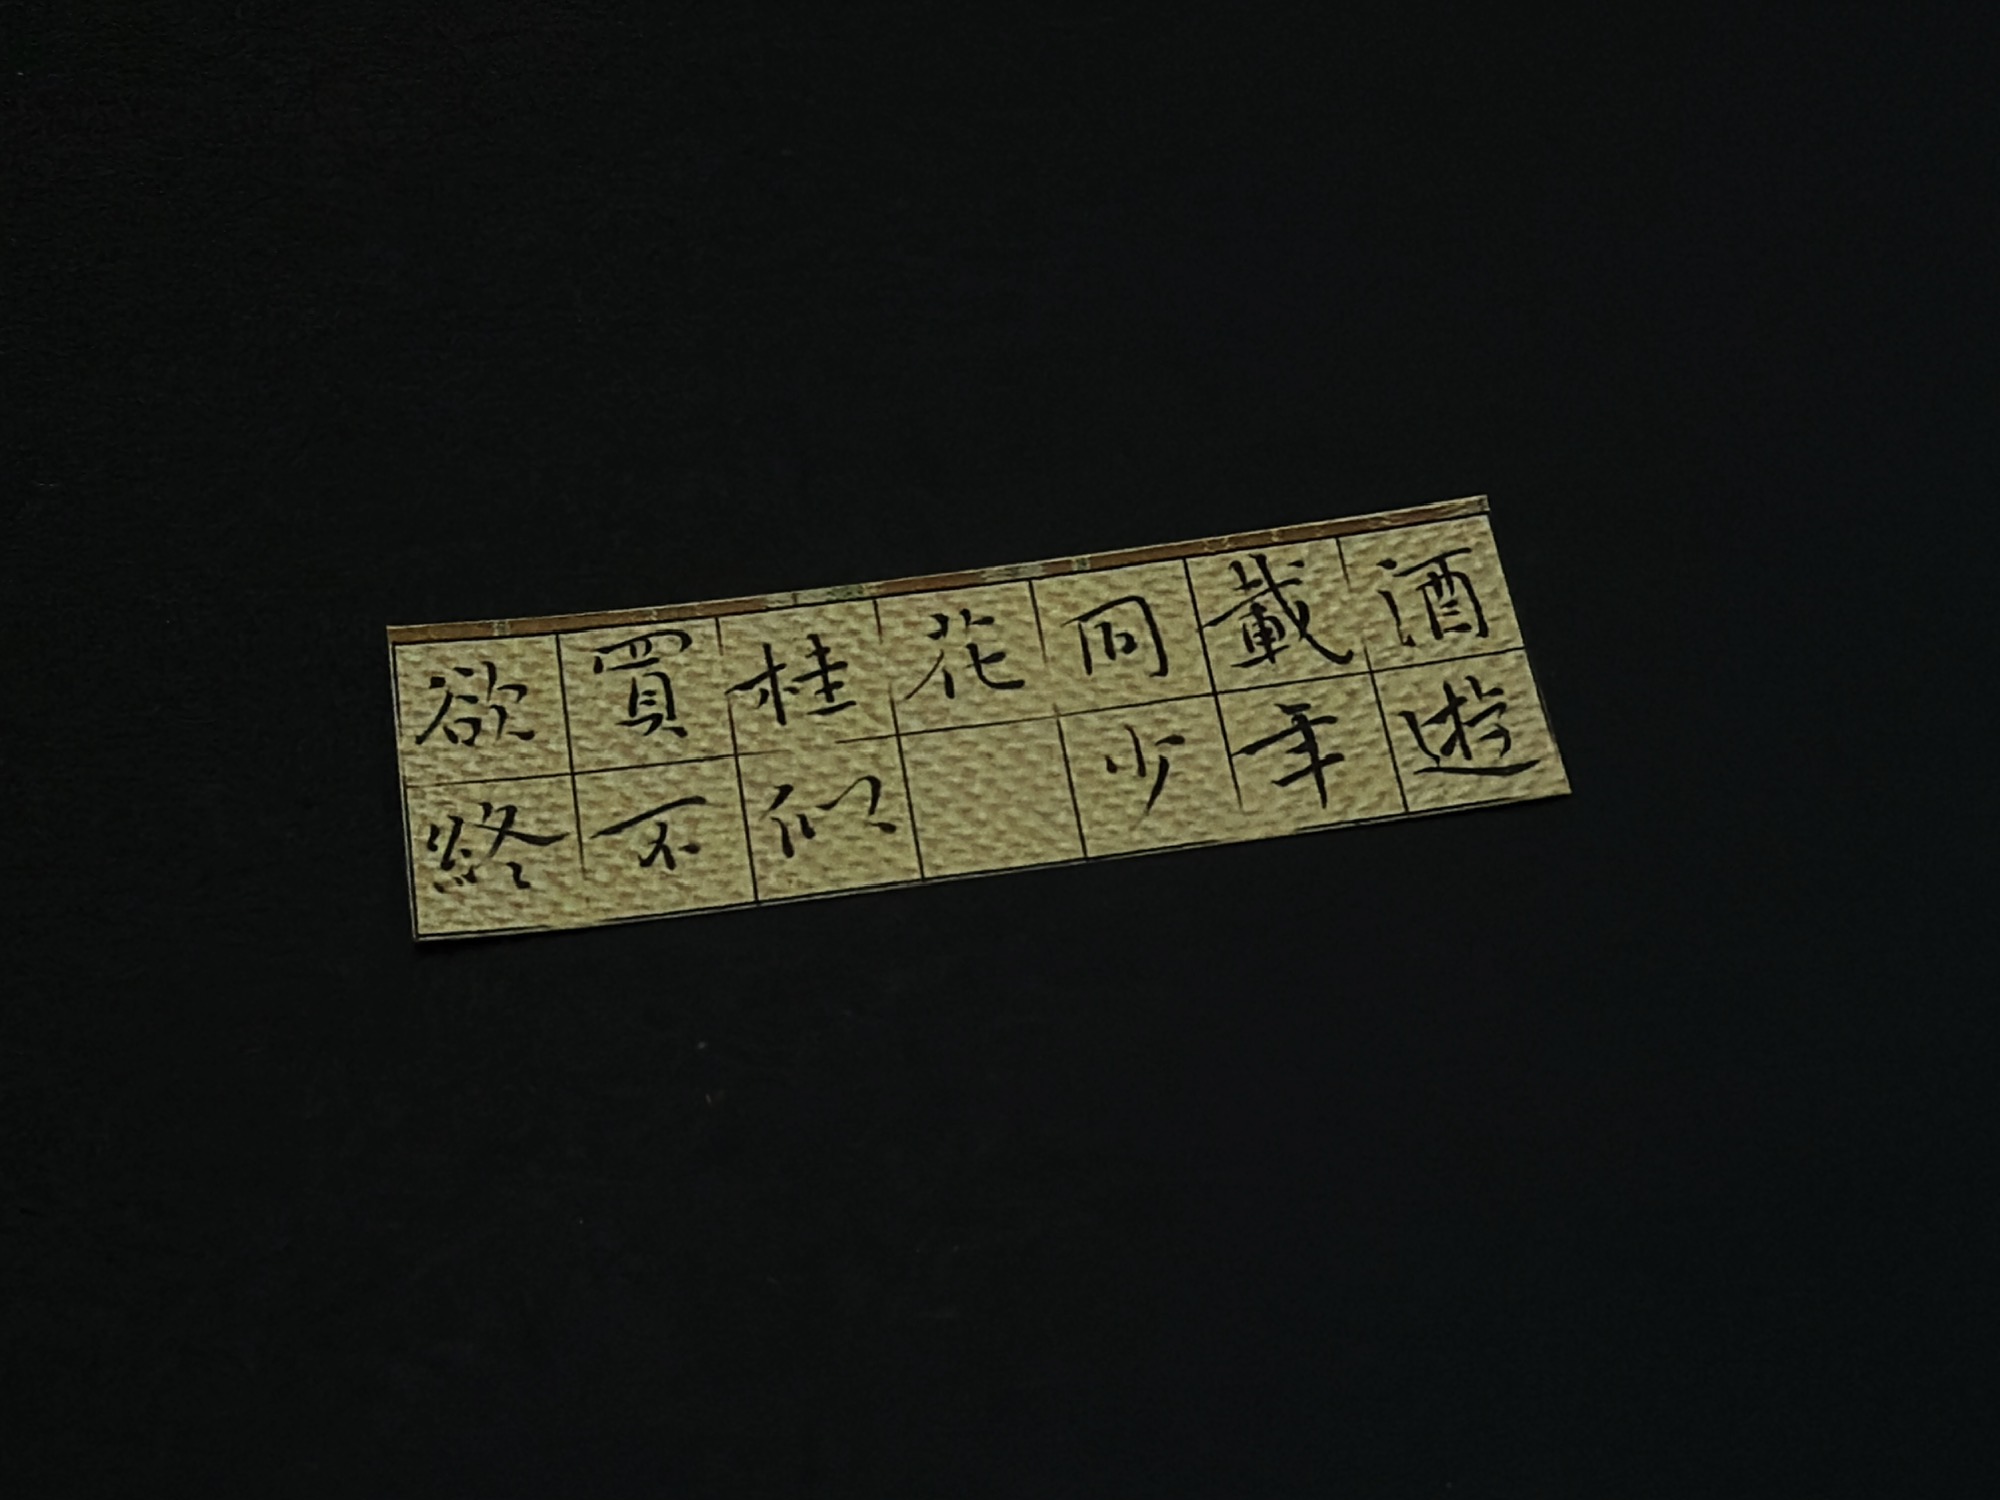 欲買桂花同載酒
終不似 少年遊